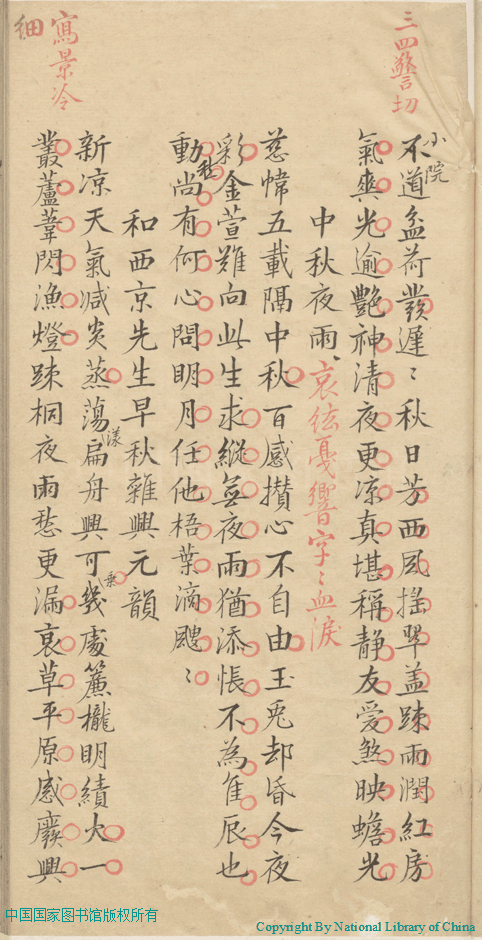 三四警切
小院
不道盆荷發遲〻秋日芳西風搖翠盖踈雨潤紅房
氣爽光逾艷神清夜更凉真堪稱静友愛煞映蟾光
中秋夜雨
哀絃戞響字〻血淚
慈幃五載隔中秋百感攢心不自由玉兎却昏今夜
彩金萱難向此生求縱無夜雨猶添悵不為佳辰也
動愁尚有何心問明月任他梧葉滴颼〻
和西京先生早秋雜興元韻
寫景冷
細
新凉天氣減炎蒸蕩漾扁舟興可乗幾處簾櫳明績火一
叢蘆葦閃漁燈踈桐夜雨愁更漏衰草平原感廢興
中国国家图书馆版权所有
Copyright By National Library of China